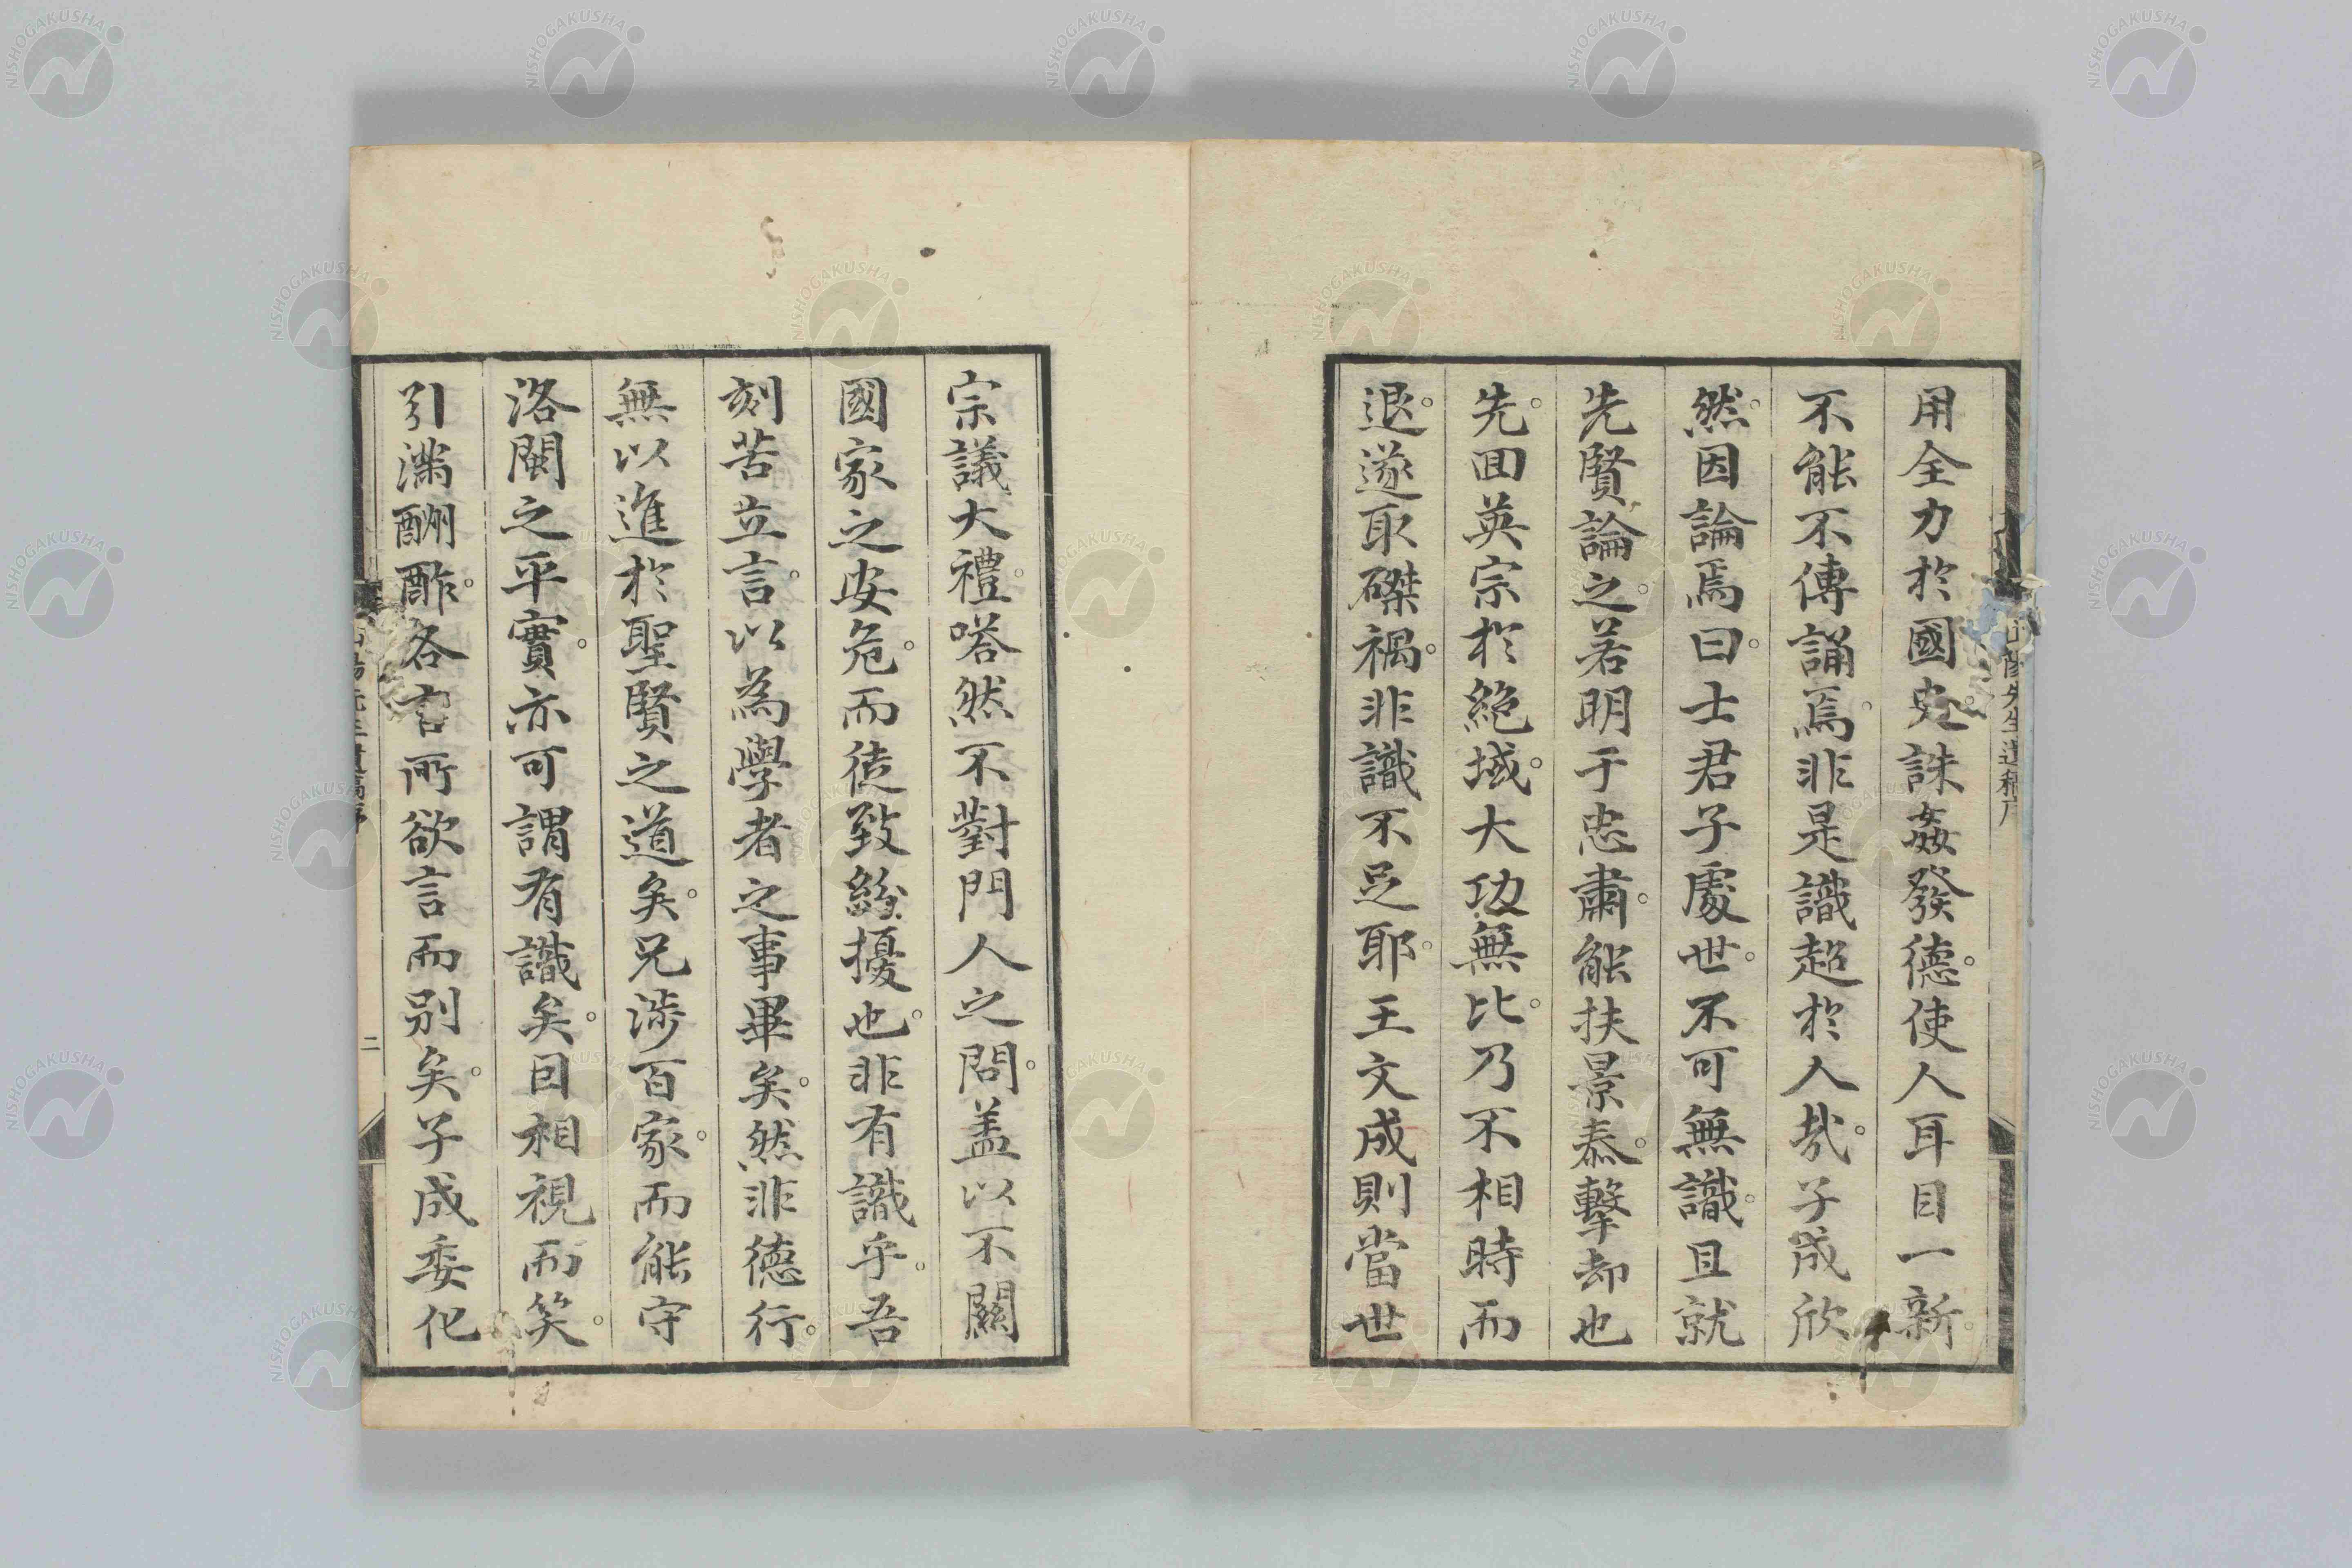 用全力於國史。誅姦發德。使人耳目一新。
不能不傳誦焉。非是識超於人㢤。子成欣
然。因論焉曰。士君子處世。不可無識。且就
先賢論之。若明于忠肅。能扶景泰。擊却也
先。回英宗於絕域。大功無比。乃不相時而
退。遂取磔禍。非識不足耶。王文成則當世
宗議大禮。嗒然不對門人之問。盖以不關
國家之安危。而徒致紛擾也。非有識乎。吾
刻苦立言。以為學者之事畢矣。然非德行。
無以進於聖賢之道矣。兄涉百家。而能守
洛閩之平實。亦可謂有識矣。因相視而笑。
引滿酬酢。各言所欲言而別矣。子成委化
二
NISHOGAKUSHA